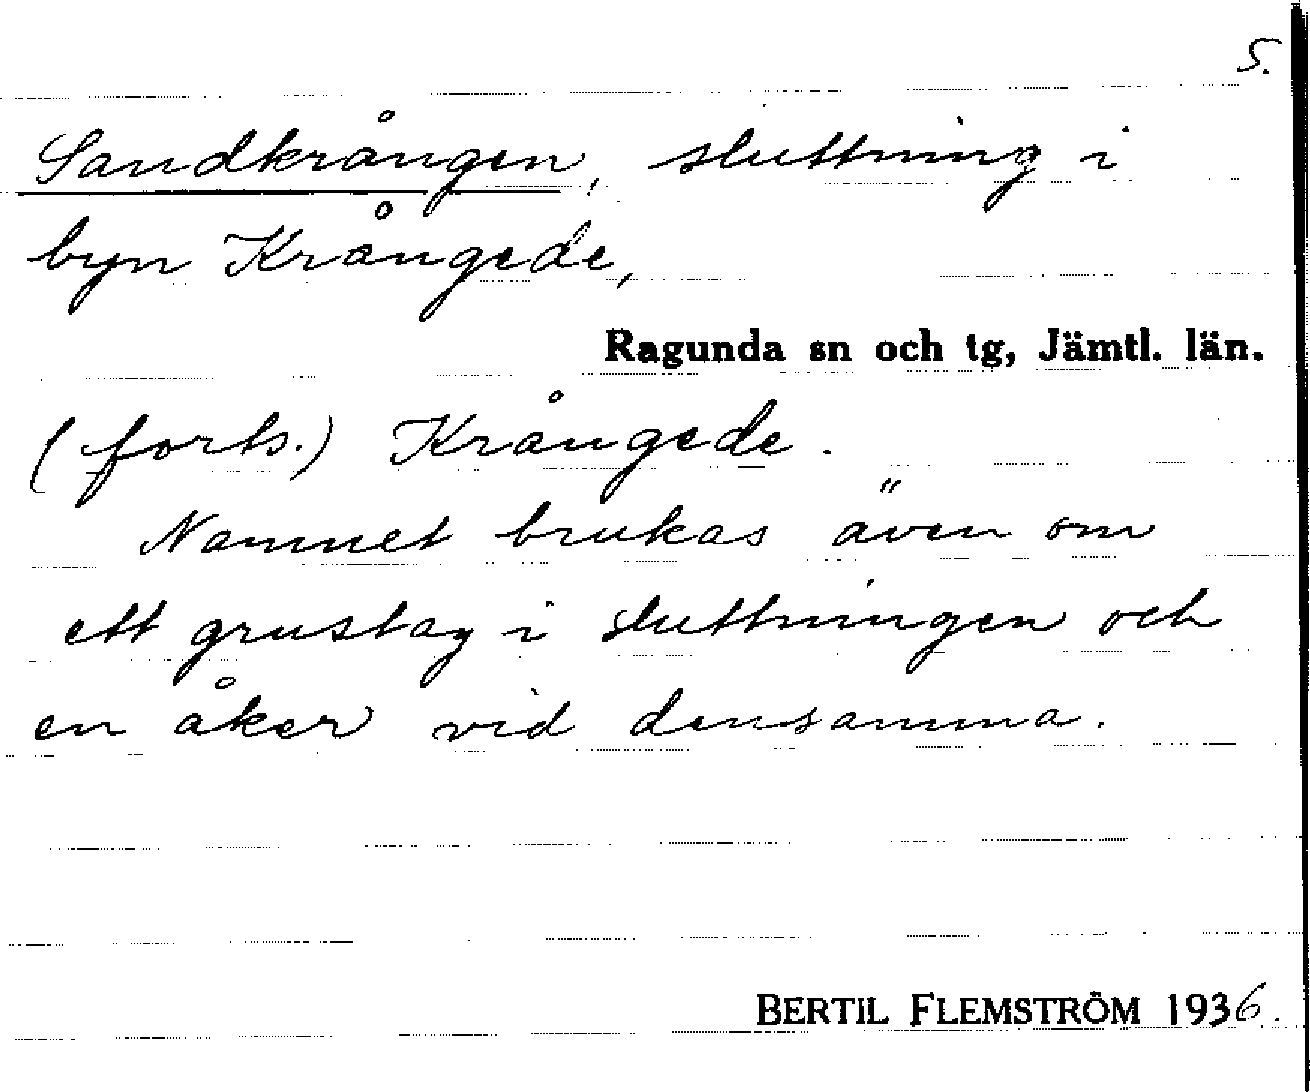 5.
Sandkrången, sluttning i
byn Krångede,
Ragunda sn och tg, Jämtl. län.
(forts.) Krångede.
Namnet brukas även om
ett grustag i sluttningen och
en åker vid densamma.
BERTIL FLEMSTRÖM 1936.